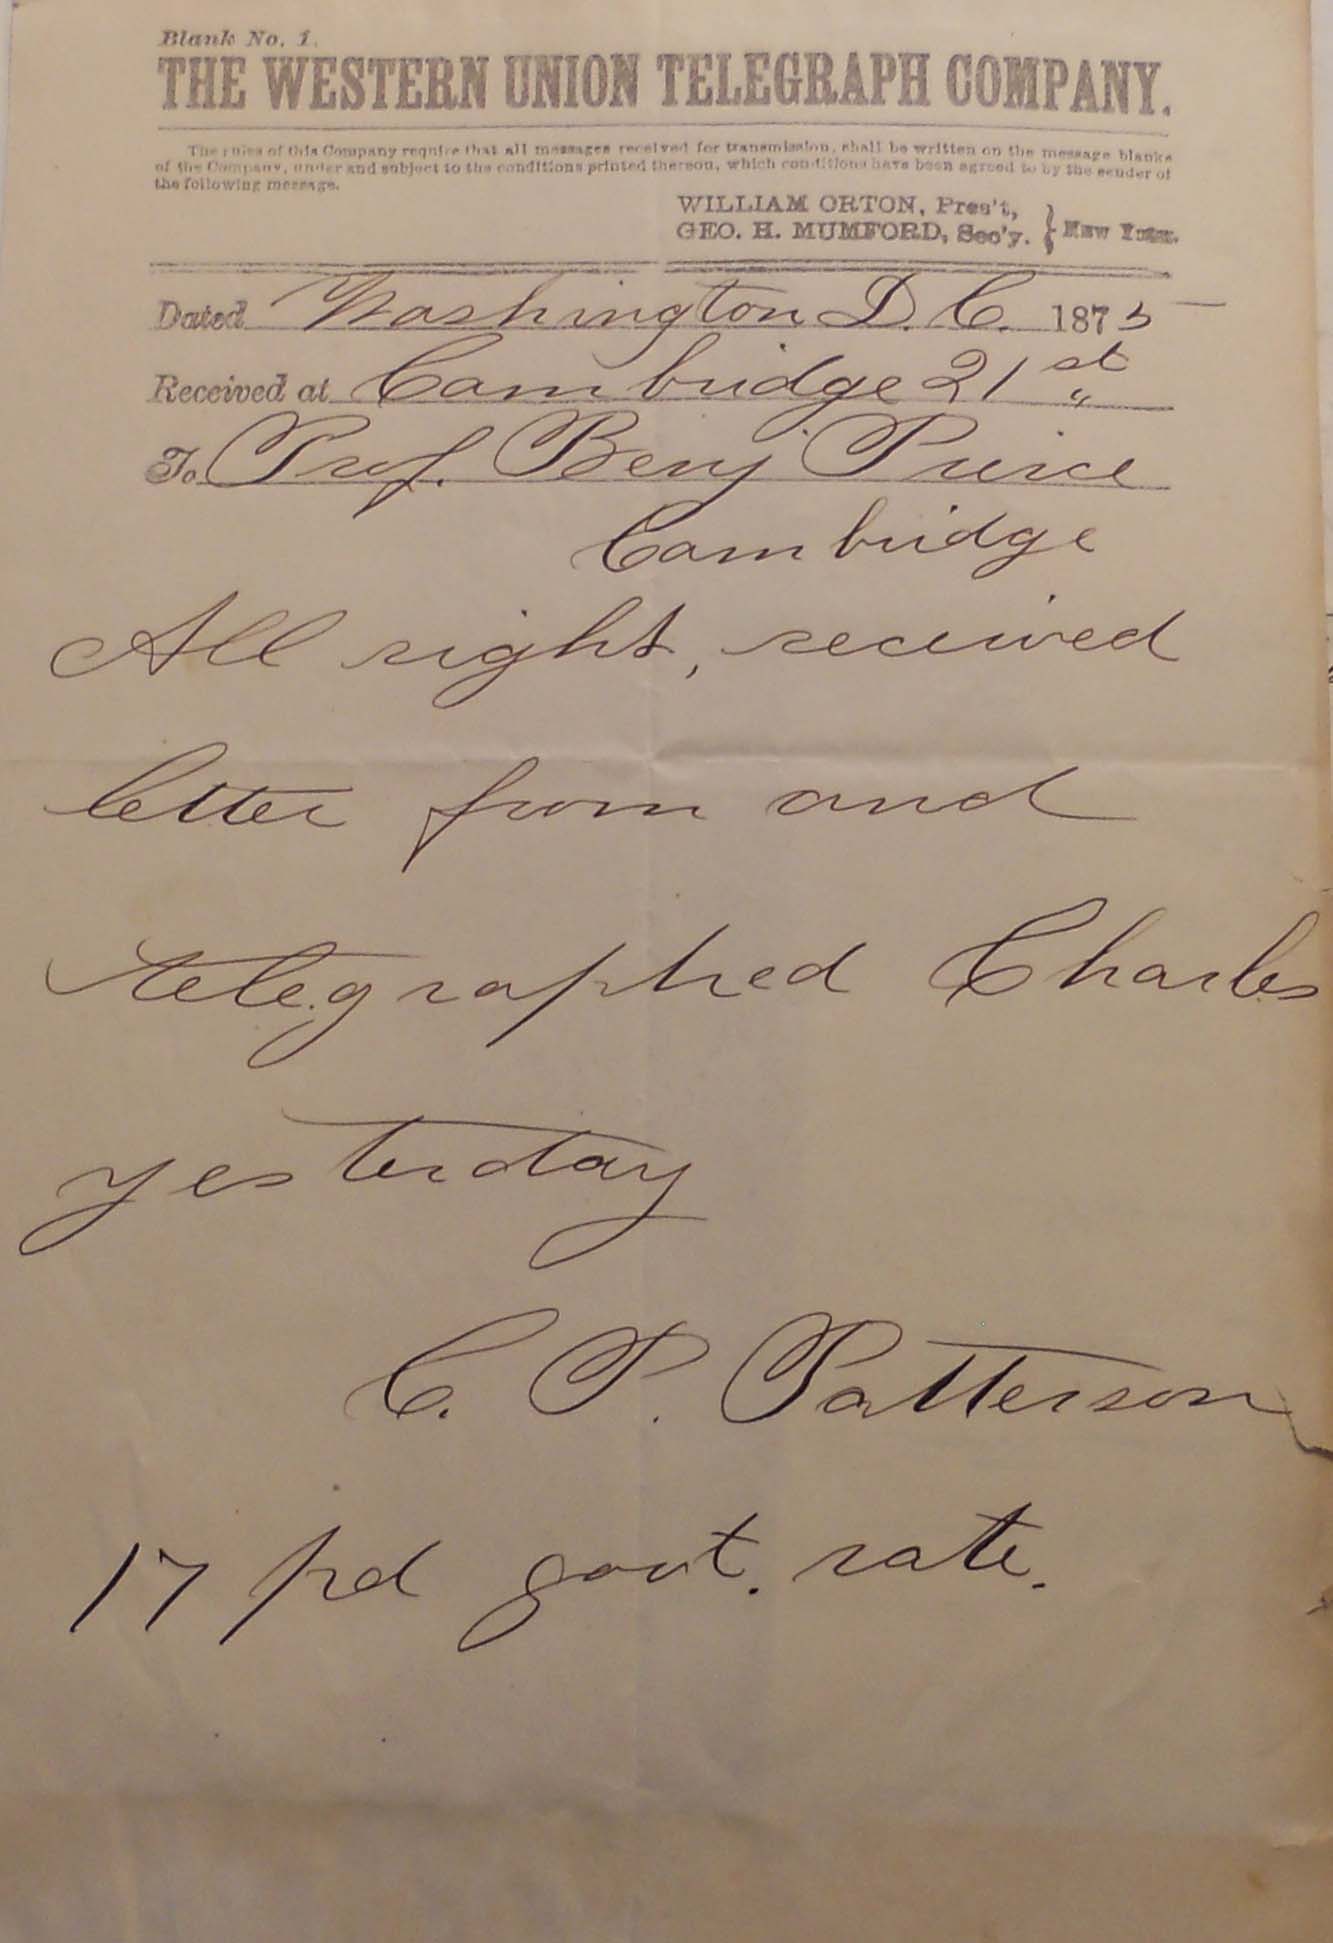 Blank No. 1.
THE WESTERN UNION TELEGRAPH COMPANY.
The rules of this Company require that all messages received for transmission, shall be written on the message blanks
of the Company, under and subject to the conditions printed thereon, which conditions have been agreed to by the sender of
the following message.
WILLIAM ORTON, Pres't,
GEO. H. MUMFORD, Sec'y. } NEW YORK.
Dated Washington D. C. 1875
Received at Cambridge 21st
To Prof. Benj Peirce
Cambridge
All right, received
letter from and
telegraphed Charles
yesterday
C. P. Patterson
17 pd govt. rate.